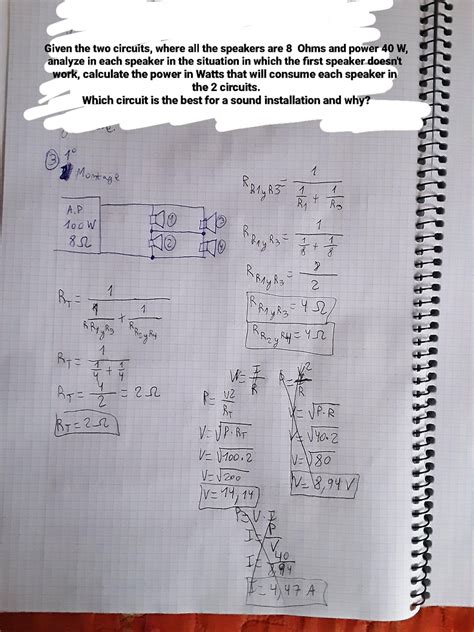 Given the two circuits, where all the speakers are 8 Ohms and power 40 W,
analyze in each speaker in the situation in which the first speaker doesn't
work, calculate the power in Watts that will consume each speaker in
the 2 circuits.
Which circuit is the best for a sound installation and why?
3 1º
Montage
A.P
100W
8Ω
1
2
3
4
R_R1yR3 = 1 / (1/R1 + 1/R3)
R_R1yR3 = 1 / (1/8 + 1/8)
R_R1yR3 = 8/2
R_R1yR3 = 4Ω
R_R2yR4 = 4Ω
R_T = 1 / (1/R_R1yR3 + 1/R_R2yR4)
R_T = 1 / (1/4 + 1/4)
R_T = 4/2 = 2Ω
R_T = 2Ω
P = V²/R_T
V = √P·R_T
V = √100·2
V = √200
V = 14,14
V = √P·R
V = √40·2
V = √80
V = 8,94 V
P = V·I
I = P/V
I = 40/8,94
I = 4,47 A